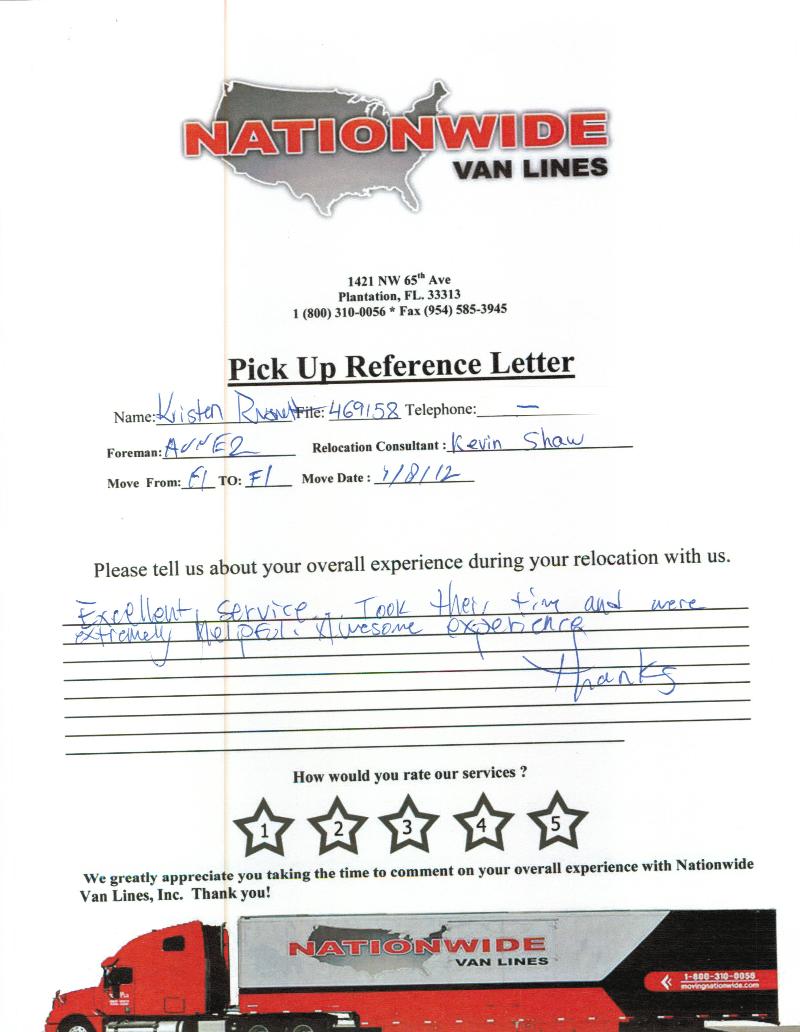 NATIONWIDE
VAN LINES
1421 NW 65th Ave
Plantation, FL. 33313
1 (800) 310-0056 * Fax (954) 585-3945
Pick Up Reference Letter
Name: Kristen File: 469158 Telephone: —
Foreman: Relocation Consultant : Kevin Shaw
Move From: Fl TO: Fl Move Date : /8/12
Please tell us about your overall experience during your relocation with us.
Excellent service... Took their time and were
extremely Helpful. Awesome experience
Thanks
How would you rate our services ?
1 2 3 4 5
We greatly appreciate you taking the time to comment on your overall experience with Nationwide
Van Lines, Inc. Thank you!
NATIONWIDE
VAN LINES
1-800-310-0056
movingnationwide.com